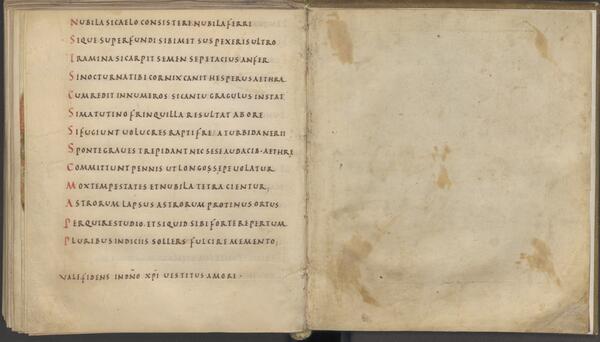 NUBILA SI CAELO CONSISTERE NUBILA FERRI
SIQUE SUPERFUNDI SIBIMET SUSPEXERIS ULTRO
STRAMINA SI CARPIT SEMEN SEPE TACIUS ANSER
SI NOCTURNA TIBI CORNIX CANIT HESPERUS AETHRA
CUM REDIT INNUMEROS SI CANTU GRAGULUS INSTAT
SI MATUTINO FRINQUILLA RESULTAT AB ORE
SI FUGIUNT UOLUCRES RAPTI FRETA TURBIDA NERII
SPONTE GRAVES TREPIDANT NEC SESE AUDACIB· AETHRE
COMMITTUNT PENNIS UT LONGOS SEPE UOLATUR
MOX TEMPESTATES ET NUBILA TETRA CIENTUR;
ASTRORUM LAPSUS ASTRORUM PROTINUS ORTUS
PERQUIRE STUDIO· ET SIQUID SIBI FORTE REPERTUM
PLURIBUS INDICIIS SOLLERS FULCIRE MEMENTO;
VALE FIDENS IN DÑO XPI UESTITUS AMORE·